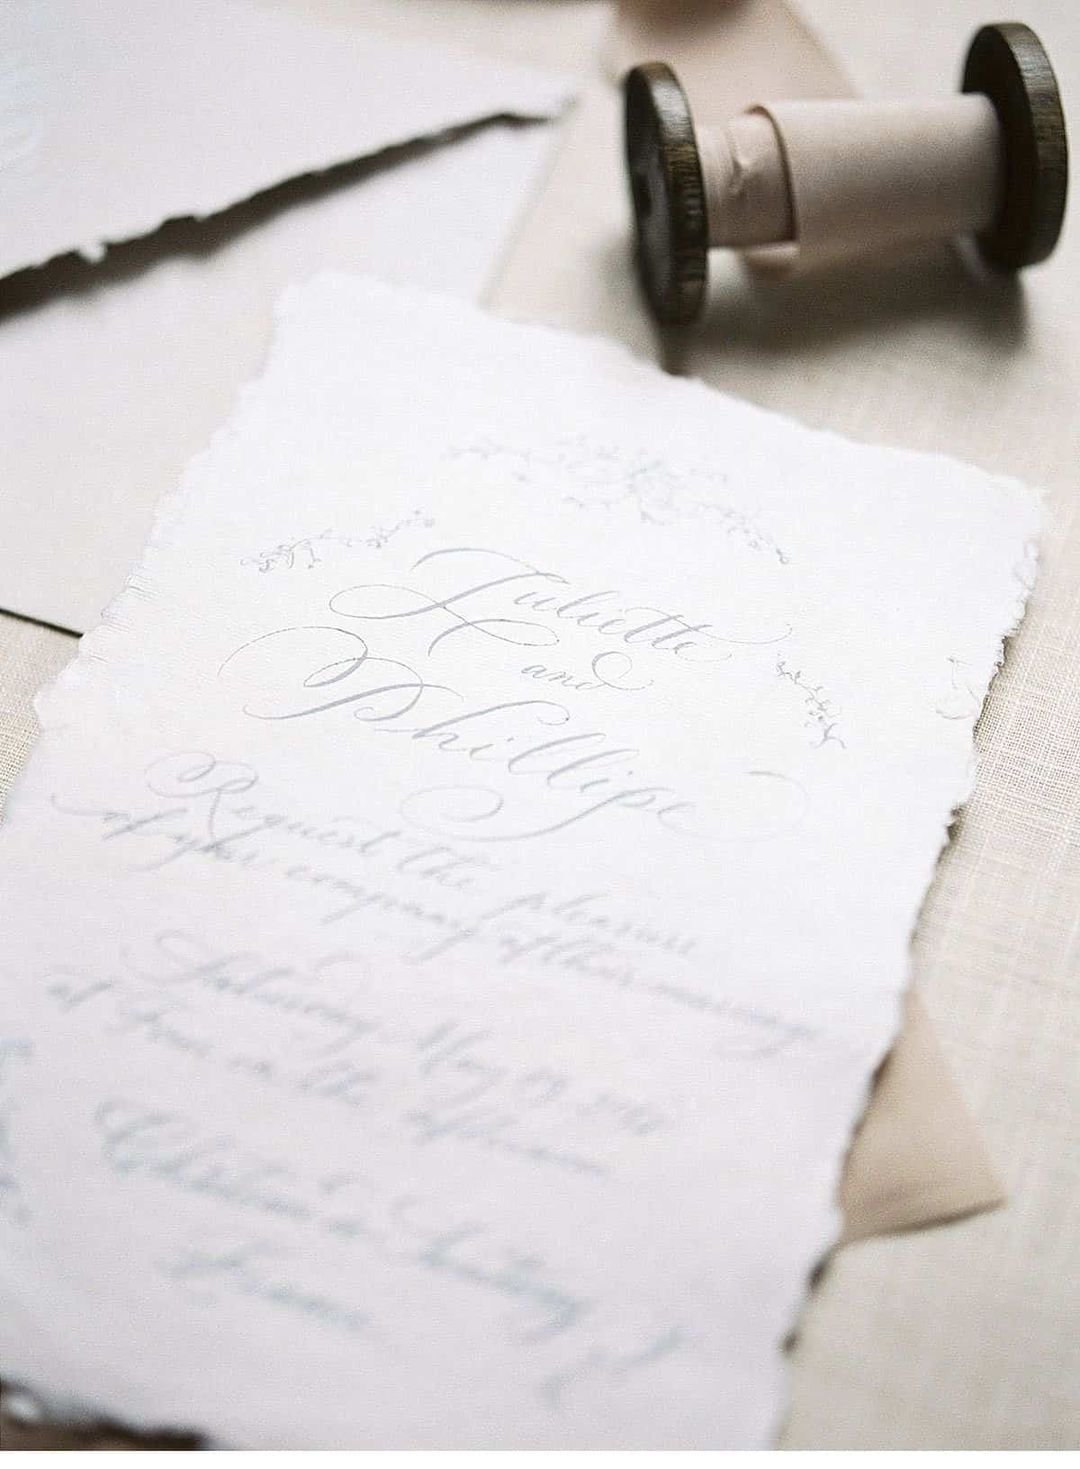 Juliette
and
Phillipe
Request the pleasure
of your company at their marriage
Saturday May 19
at four in the afternoon
France